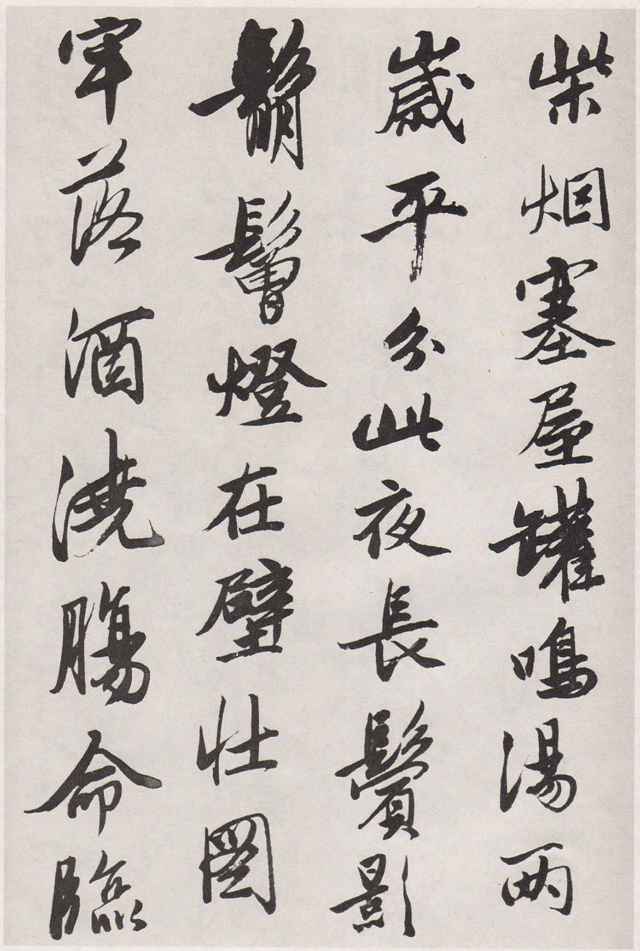 柴烟塞屋罐鳴湯两
歲平分此夜長鬢影
鬅鬙燈在壁壮圖
牢落酒澆腸命臨